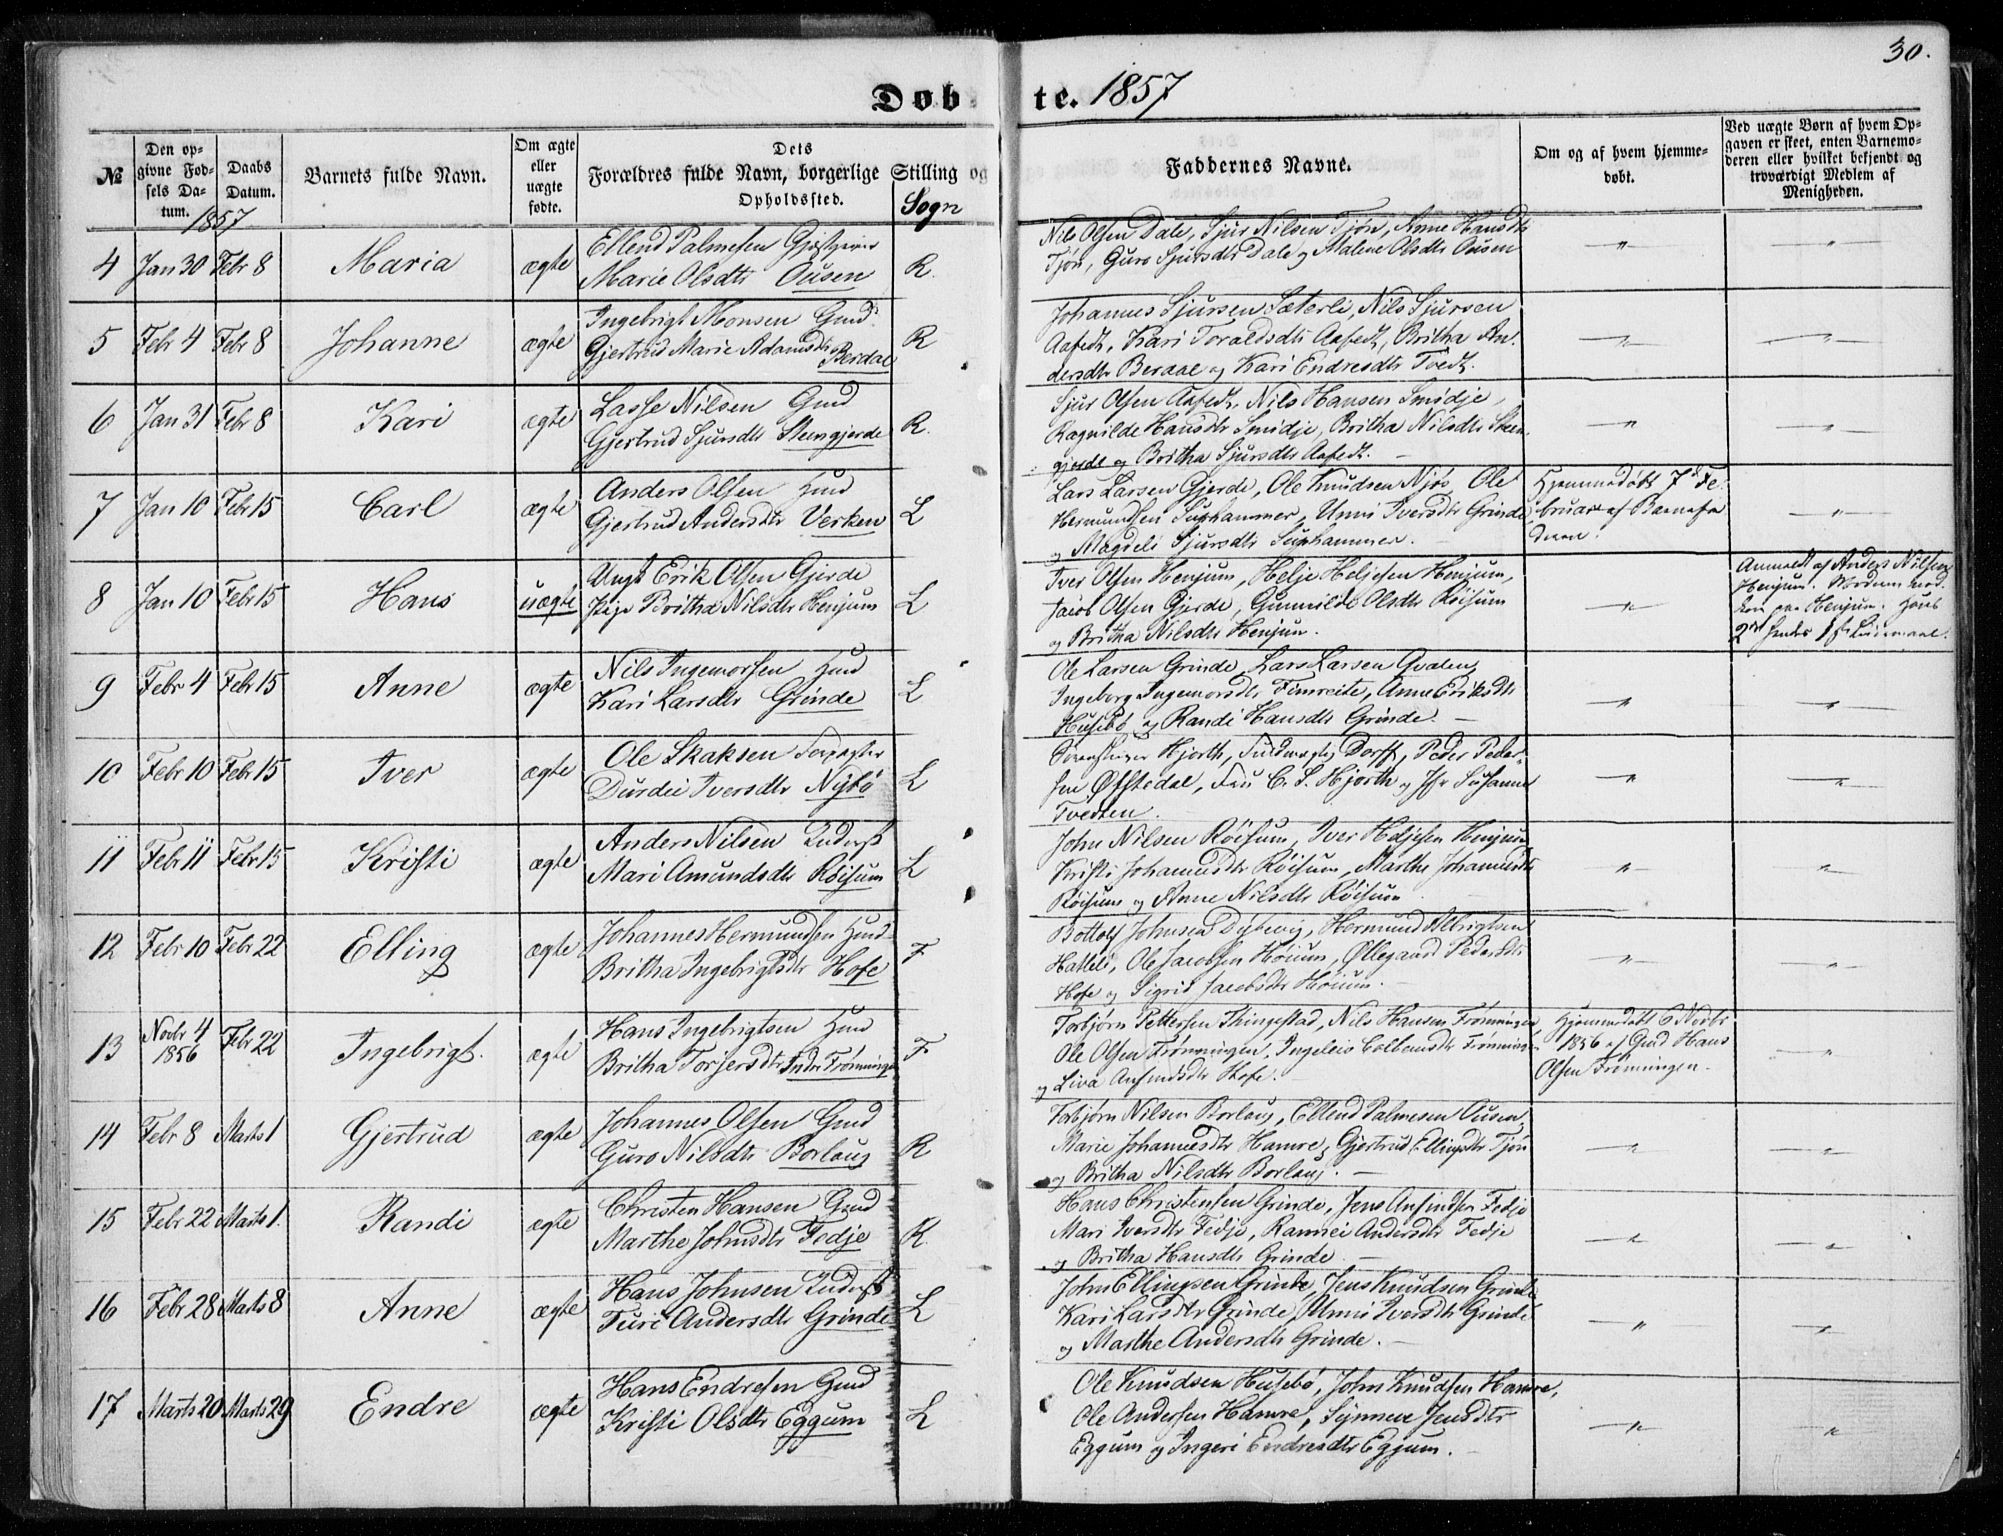 30.
Døbte. 1857
№
Den opgivne Fødsels Datum.
Daabs Datum.
1857
Barnets fulde Navn.
Om ægte eller uægte fødte.
Dets Forældres fulde Navn, borgerlige Stilling og Opholdssted.
Sogn
Faddernes Navne.
Om og af hvem hjemmedøbt.
Ved uægte Børn af hvem Opgaven er skeet, enten Barnemoderen eller hvilket bekjendt og troværdigt Medlem af Menigheden.
4 Jan 30 Febr 8 Maria ægte
Ellend Palmesen Gjæstgiver
Marie Olsdtr Ousen R.
Nils Olsen Dale, Sjur Nilsen Tjøn, Anne Hansdtr
Tjøn, Guro Sjursdtr Dale og Malene Olsdtr Ousen
5 Febr 4 Febr 8 Johanne ægte
Ingebrigt Monsen Gmd
Gjertrud Marie Adamsdtr Berdal R
Johannes Sjursen Sæterli, Nils Sjursen
Aafedt, Kari Toraldsdtr Aafedt, Britha An-
dersdtr Berdal og Kari Endresdtr Tvedt.
6 Jan 31 Febr 8 Kari ægte
Lasse Nilsen Gmd
Gjertrud Sjursdtr Steengjerde R.
Sjur Olsen Aafedt, Nils Hansen Smidje,
Ragnilde Hansdtr Smidje, Britha Nilsdtr Steen
gjerde og Britha Sjursdtr Aafedt.
7 Jan 10 Febr 15 Carl ægte
Anders Olsen Hmd
Gjertrud Andersdtr Verken L
Lars Larsen Gjerde, Ole Knudsen Njøs, Ole
Hermundsen Suphammer, Unni Iversdtr Grinde
og Magdeli Sjursdtr Suphammer.
Hjemmedøbt 7d Fe-
bruar af Barnefa
deren.
8 Jan 10 Febr 15 Hans uægte
Ungk Erik Olsen Gjerde
Pige Britha Nilsdtr Henjum L
Iver Olsen Henjum, Helje Heljesen Henjum,
Jacob Olsen Gjerde, Gunnilde Olsdtr Røisum
og Britha Nilsdtr Henjum.
Anmeldt af Anders Nilsen
Henjum. Moderen
paa Henjum. Hans
2det hendes 1ste Leiermaal.
9 Febr 4 Febr 15 Anne ægte
Nils Ingemorsen Hmd
Kari Larsdtr Grinde L
Ole Larsen Grinde, Lars Larsen Qvalen,
Ingeborg Ingemorsdtr Fimreite, Anne Eriksdtr
Husebø og Randi Hansdtr Grinde.
10 Febr 10 Febr 15 Iver ægte
Ole Skaksen
Durdei Iversdtr Nybø L
Sorenskriver Hjorth, Fuldmægtig Dorff, Peder Peder-
sen Øfstedal, Fru C. S. Hjorth og Jfr Susanne
Tvedten.
11 Febr 11 Febr 15 Kristi ægte
Anders Nilsen Inderst
Mari Amundsdtr Røisum L
John Nilsen Røisum, Iver Heljesen Henjum
Kristi Johannesdtr Røisum, Marthe Johannesdtr
Røisum og Anne Nilsdtr Røisum
12 Febr 10 Febr 22 Elling ægte
Johannes Hermundsen Hmd
Britha Ingebrigtsdtr Hofe F
Bottolf Johnsen Dybevig, Hermund Albrigtsen
Hatleli, Ole Jacobsen Høium, Øllegaard Pedersdtr
Hofe og Sigrid Jacobsdtr Høium.
13 Novbr 4 1856 Febr 22 Ingebrigt. ægte
Hans Ingebrigtsen Hmd
Britha Torjersdtr Indre Frønningen F
Torbjørn Pettersen Thingestad, Nils Hansen Frønningen
Ole Olsen Frønningen, Ingeleiv Frønningen
og Liva Anfindsdtr Hofe.
Hjemmedøbt 6 Novbr
1856 af Gmd Hans
Olsen Frønningen.
14 Febr 8 Marts 1 Gjertrud ægte
Johannes Olsen Gmd
Guro Nilsdtr Borlaug R
Torbjørn Nilsen Borlaug, Ellend Palmesen Ousen,
Marie Johannesdtr Hamre, Gjertrud Ellingsdtr Tjøn
og Britha Nilsdtr Borlaug.
15 Febr 22 Marts 1. Randi ægte
Christen Hansen Gmd
Marthe Johnsdtr Fedje R.
Hans Christensen Grinde, Jens Anfindsen Fedje
Mari Iversdtr Fedje, Rannei Andersdtr Fedje
og Britha Hansdtr Grinde
16 Febr 28 Marts 8 Anne ægte
Hans Johnsen Inderst
Turi Andersdtr Grinde L
John Ellingsen Grinde, Jens Knudsen Grinde
Kari Larsdtr Grinde, Unni Iversdtr Grinde
og Marthe Andersdtr Grinde.
17 Marts 20 Marts 29 Endre ægte
Hans Endresen Gmd
Kristi Olsdtr Eggum L
Ole Knudsen Husebø, John Knudsen Hamre,
Ole Andersen Hamre, Synneve Jensdtr
Eggum og Ingeri Endresdtr Eggum.